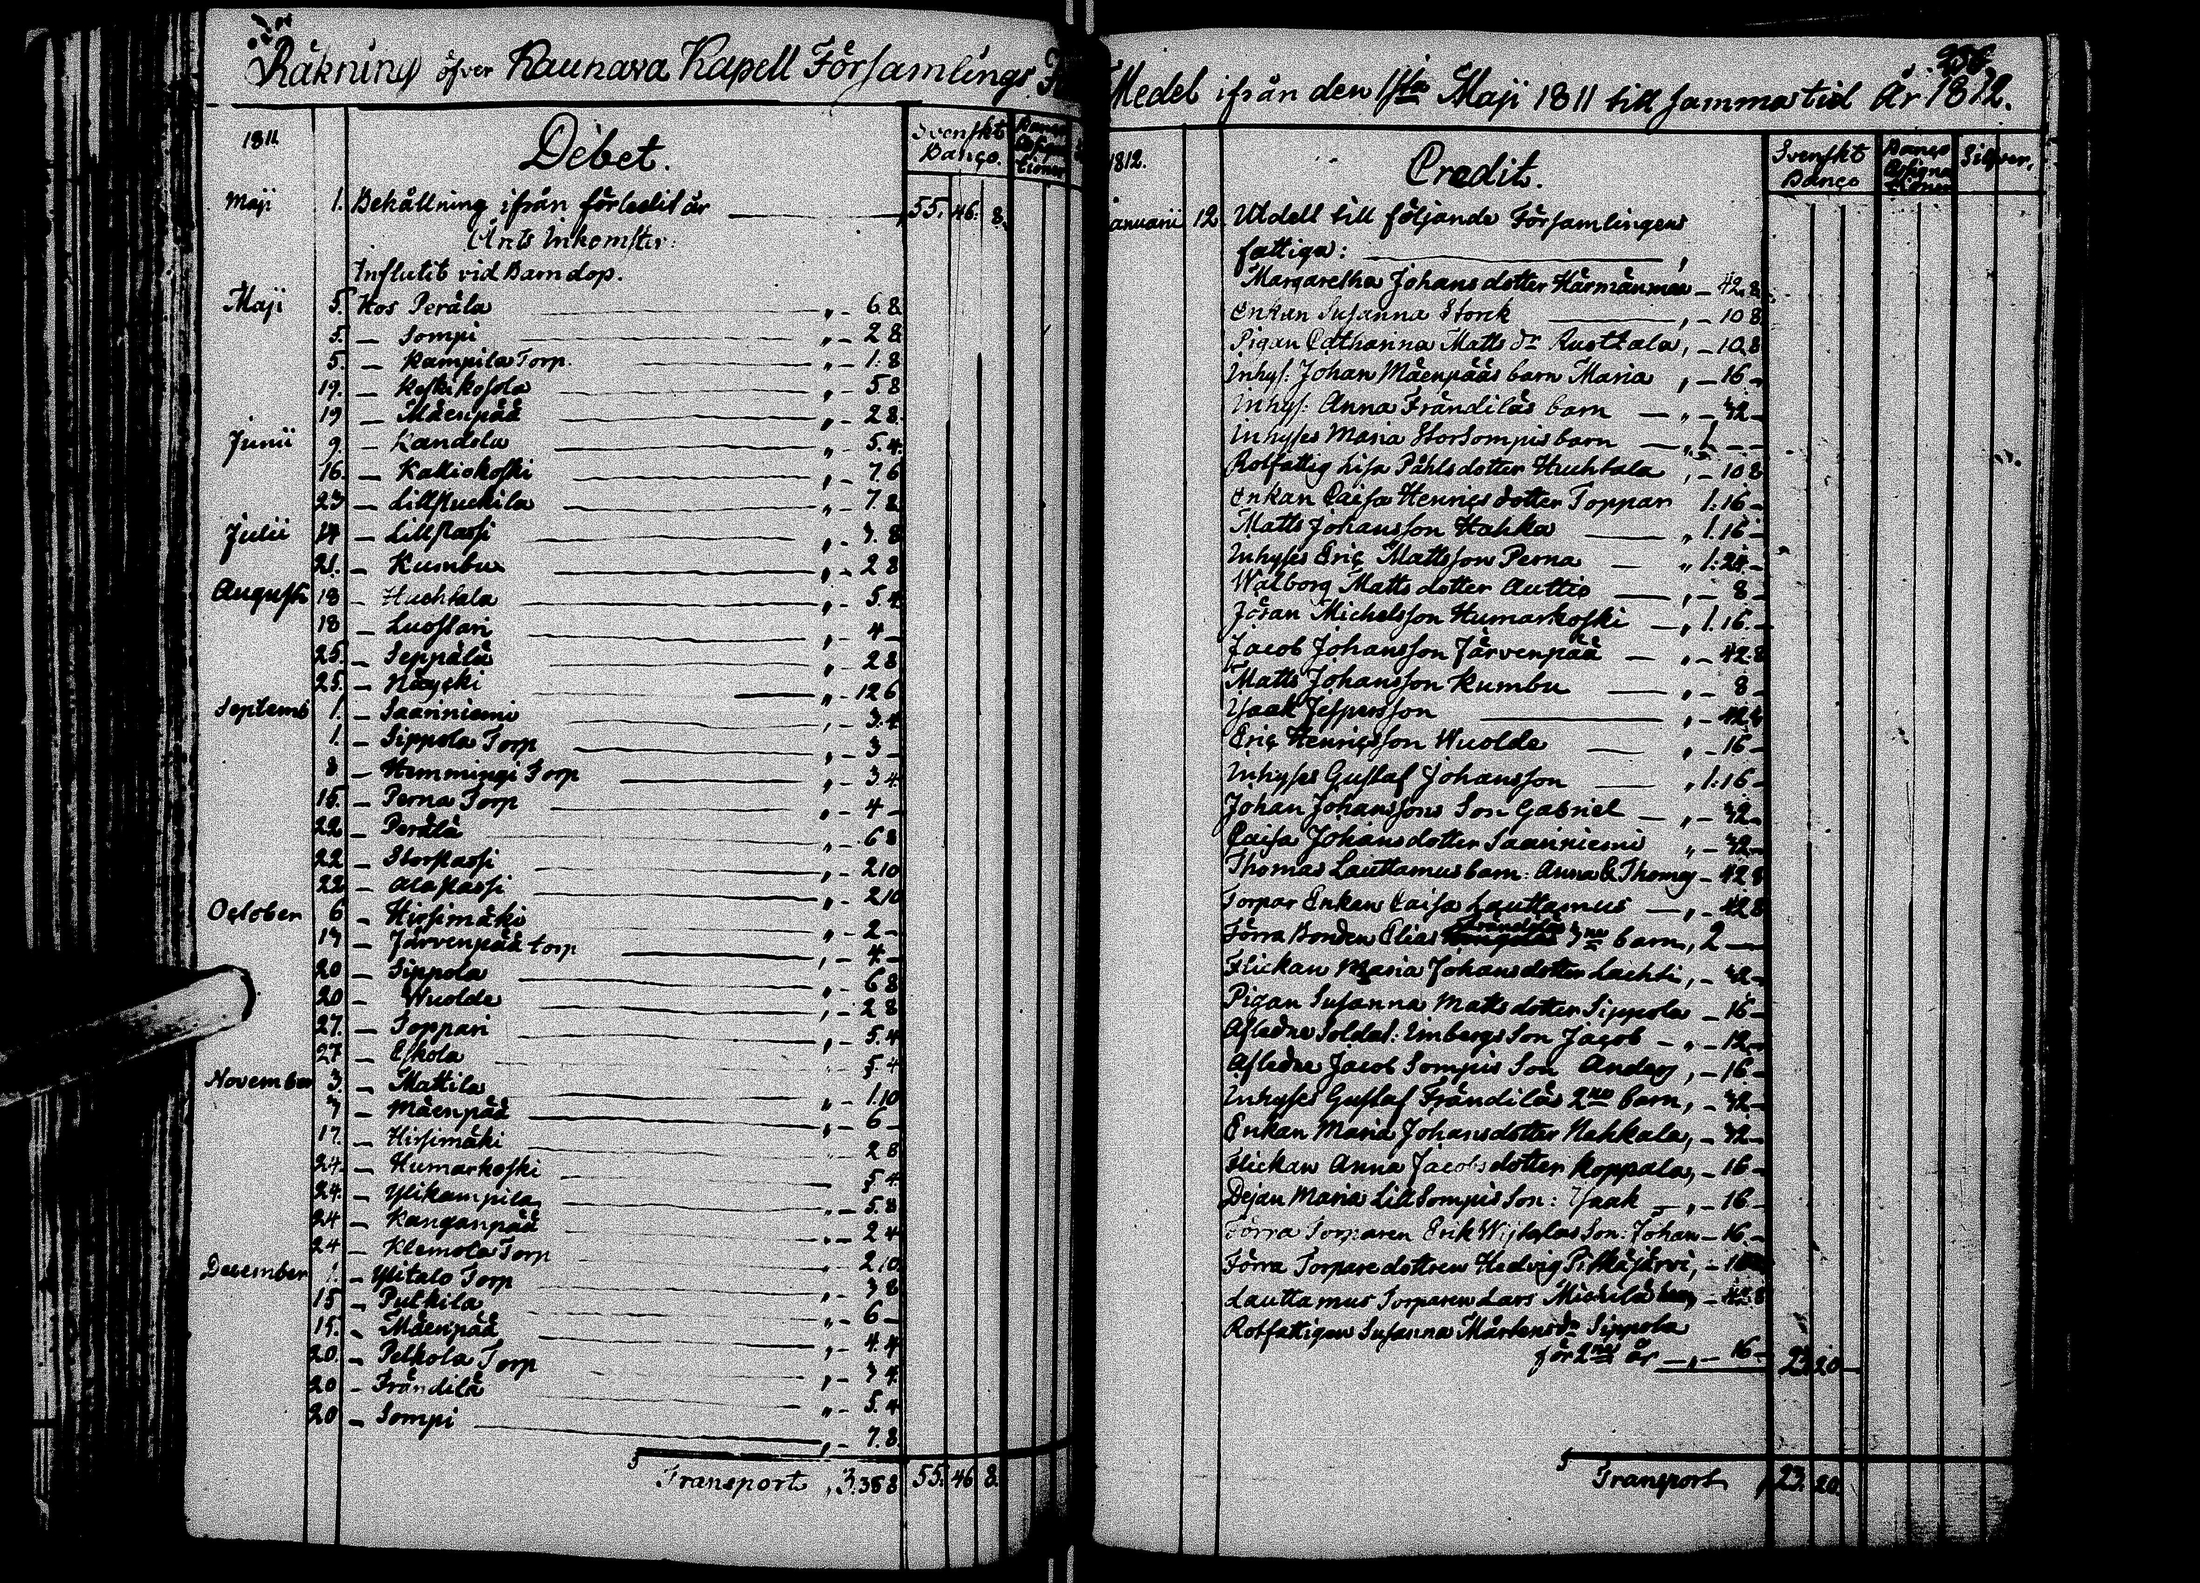 Räkning öfver Kaunava Kapell Församlings
1811.
Debet.
Svenskt Banço.
Maji 1. Behållning ifrån förledit år 55. 46. 8.
Årets Inkomster:
Influtit vid Barndop.
Maji 5. Hos Perälä „ – 6.8.
5. – Sompi „ – 2 8
5. – Kampila Torp „ – 1.8
19. – Koskikosola „ – 5 8
19 – Mäenpää „ – 2 8
Junii 9. – Kandola „ – 5.4.
16. – Kalliokoski „ – 7.6
23 – Lillkuckila „ – 7 8
Julii 14 – Lillpassi „ – 3. 8
21. – Kumbu „ – 2 8
Augusti 18 – Huchtala „ – 5.4
18 – Luossari „ – 4 –
25. – Seppälä „ – 2 8
25. – Näyçki „ – 12 6
Septemb 1. – Saariniemi „ – 3.4
1. – Sippola Torp „ – 3 –
8 – Hemmingi Torp „ – 3 4
15. – Perna Torp „ – 4 –
22 – Perälä „ – 6 8
22 – Storpassi „ – 2 10
22 – Alapassi „ – 2 10
October 6 – Hirsimäki „ – 2 –
13 – Järvenpää torp „ – 4 –
20 – Sippola „ – 6 8
20 – Wuolde „ – 2 8
27. – Toppari „ – 5.4
27 – Eskola 5 4
November 3. – Mattila „ – 1.10
7 – Mäenpää „ – 6 –
17. – Hirsimäki 2 8
24. – Humarkoski 5 4
24. – Ylikampila „ – 5.8
24 – Kanganpää „ – 2 4
24 – Klemola Torp „ 2 10
December 1. – Ylitalo Torp „ – 3 8
15 – Pulkila „ – 6 –
15. – Mäenpää „ – 4.4
20. – Pelkola Torp „ – 3 4
20 – Frändilä „ – 5.4
20 – Sompi „ – 7.8
Transport „ 3.35 8 55. 46 8.
Medel ifrån den 1sta Maji 1811 till samma tid År 1812.
1812.
Credit.
Svenskt Banço
Banço Assignationer
Silfver.
Januarii 12. Utdelt till följande Församlingens
fattiga:
Margaretha Johansdotter Härmänmaa – 42. 8
Enkan Susanna Storck „ – 10 8
Pigan Catharina Matts dr Ruottala, – 10.8
Inhys: Johan Mäenpääs barn Maria „ – 16 –
Inhys: Anna Frändiläs barn – „ – 32 –
Inhyses Maria Storsompis barn – „ 1 – –
Rotfattig Lisa Påhlsdotter Huchtala „ – 10 8
Enkan Caisa Henriçs dotter Toppar 1.16 –
Matts Johansson Hahka „ 1.16 –
Inhyses Eriç Mattsson Perna – „ 1.24 –
Walborg Mattsdotter Auttio „ – 8 –
Jöran Michelsson Humarkoski – „ 1.16. –
Jacob Johansson Järvenpää – „ – 42 8
Matts Johansson Kumbu „ – 8 –
Isaak Jespersson „ – 42 8
Eriç Henriçsson Wuolde „ – 16 –
Inhyses Gustaf Johansson „ 1.16 –
Johan Johanssons Son Gabriel – „ – 32 –
Caisa Johansdotter Saariniemi „ – 32 –
Thomas Lauttamus barn: Anna & Thomas – 42 8
Torpar Enkan Caisa Lauttamus – „ – 42 8
Frändiläs
Förra Bonden Elias 3ne barn, 2 –
Flickan Maria Johansdotter Lachti, – 32 –
Pigan Susanna Mattsdotter Sippola – 16 –
Afledne Soldat: Imbergs Son Jacob – „ – 12 –
Afledne Jacob Sompis Son Anders, – 16 –
Inhyses Gustaf Frändiläs 2ne barn, – 32 –
Enkan Maria Johansdotter Nahkala, – 32 –
Flickan Anna Jacobsdotter Koppala, – 16 –
Dejan Maria Lillsompis Son: Isaak – „ – 16 –
Förra Torparen Erik Wijtalas Son: Johan – 16. –
Förra Torparedottren Hedvig Pitkäjärvi, –
Lauttamus Torparen Lars Michels – 42 8
Rotfattigen Susanna Mårtensdr Sippola
för 2ne år – „ – 16 – 23. 20 –
Transport 23. 20.